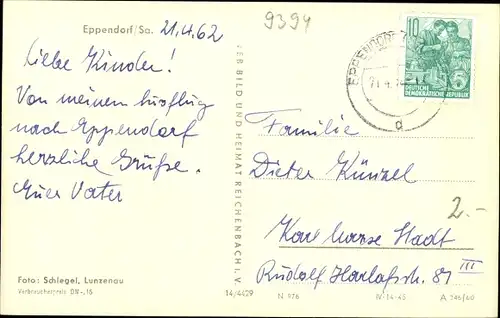 Eppendorf/Sa. 21.4.62
9394
Liebe Kinder!
Von meinem Ausflug
nach Eppendorf
herzliche Grüße.
Euer Vater
VER BILD UND HEIMAT REICHENBACH i. V.
10
DEUTSCHE
DEMOKRATISCHE REPUBLIK
EPPENDORF
d
Familie
Dieter Künzel
2.-
Karl Marx Stadt
Rudolf Harlaßstr. 81 III
Foto: Schlegel, Lunzenau
Verbraucherpreis DM -,15
14/4429 N 976 IV-14-45 A 346/60